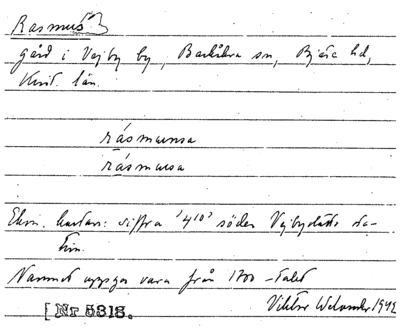 Rasmus
gård i Vejby by, Barkåkra sn, Bjäre hd,
Krist. län.
rásmunsa
rásmusa
Ekon. kartan: siffra '410' söder Vejbyslätts sta-
tion.
Namnet uppges vara från 1700-talet
Viktor Welander 1942
[Nr 5318.